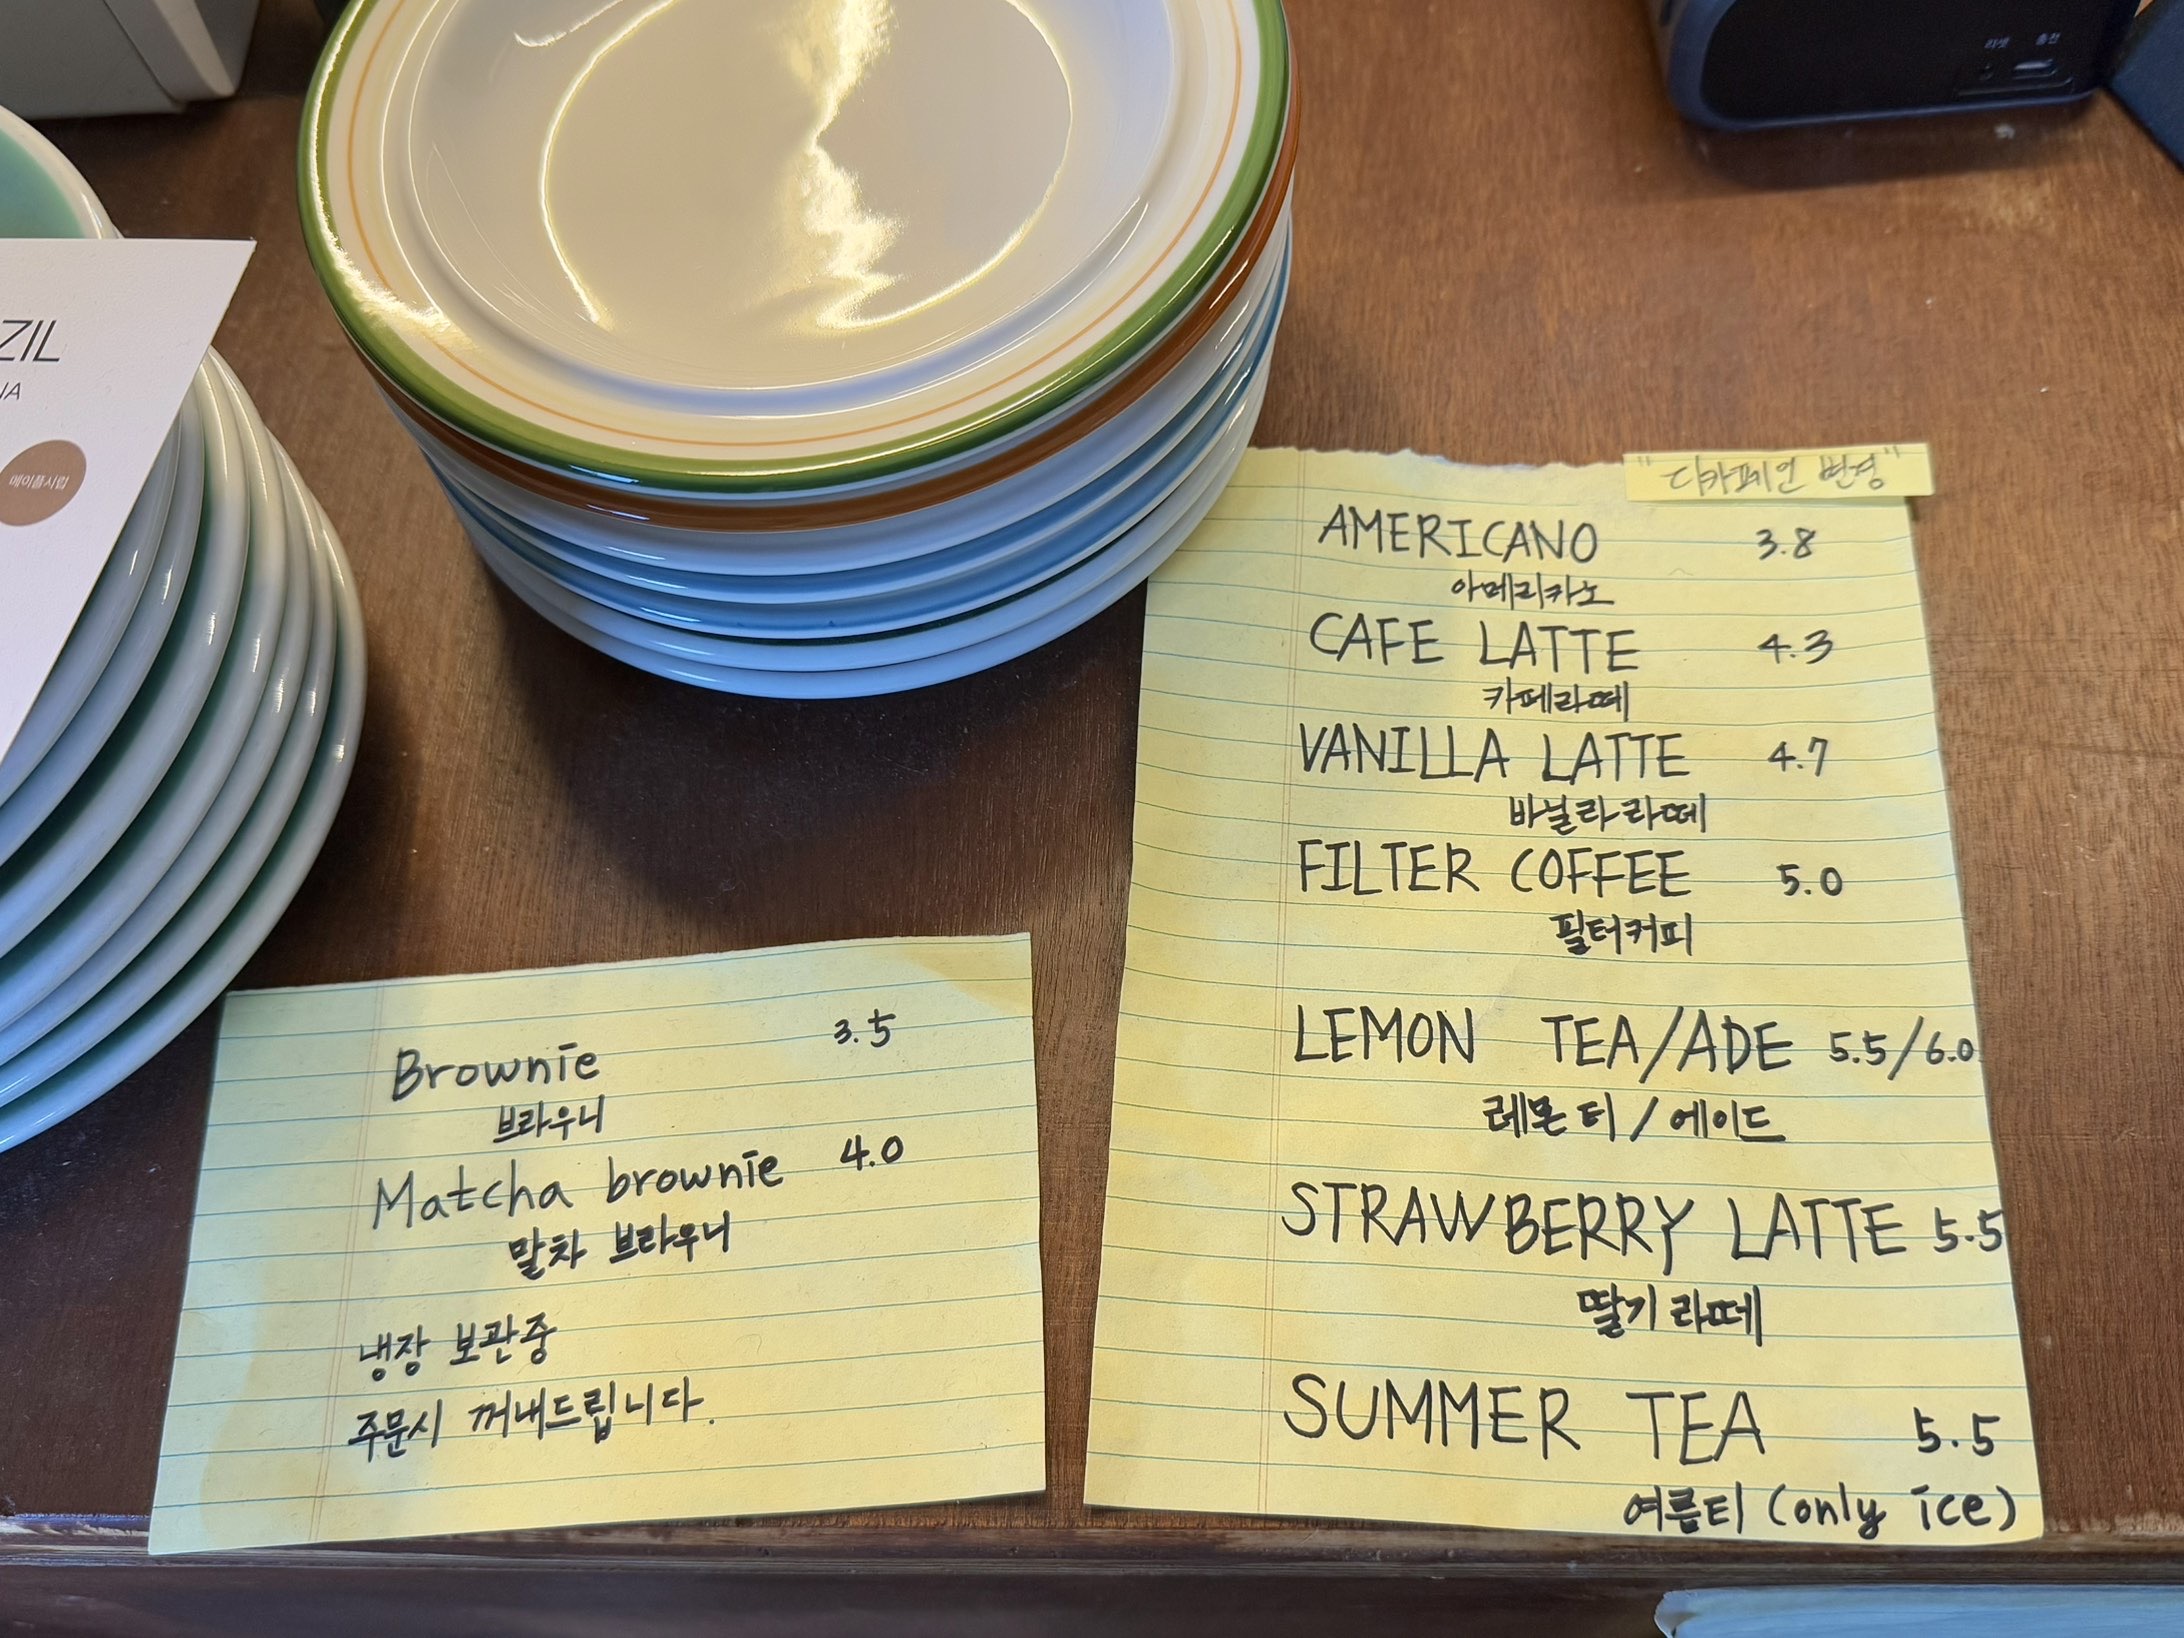 ZIL
NA
메이플시럽
리셋 충전
"디카페인 변경"
AMERICANO 3.8
아메리카노
CAFE LATTE 4.3
카페라떼
VANILLA LATTE 4.7
바닐라 라떼
FILTER COFFEE 5.0
필터커피
LEMON TEA/ADE 5.5/6.0
레몬 티 / 에이드
STRAWBERRY LATTE 5.5
딸기 라떼
SUMMER TEA 5.5
여름티 (only ice)
Brownie 3.5
브라우니
Matcha brownie 4.0
말차 브라우니
냉장 보관중
주문시 꺼내드립니다.